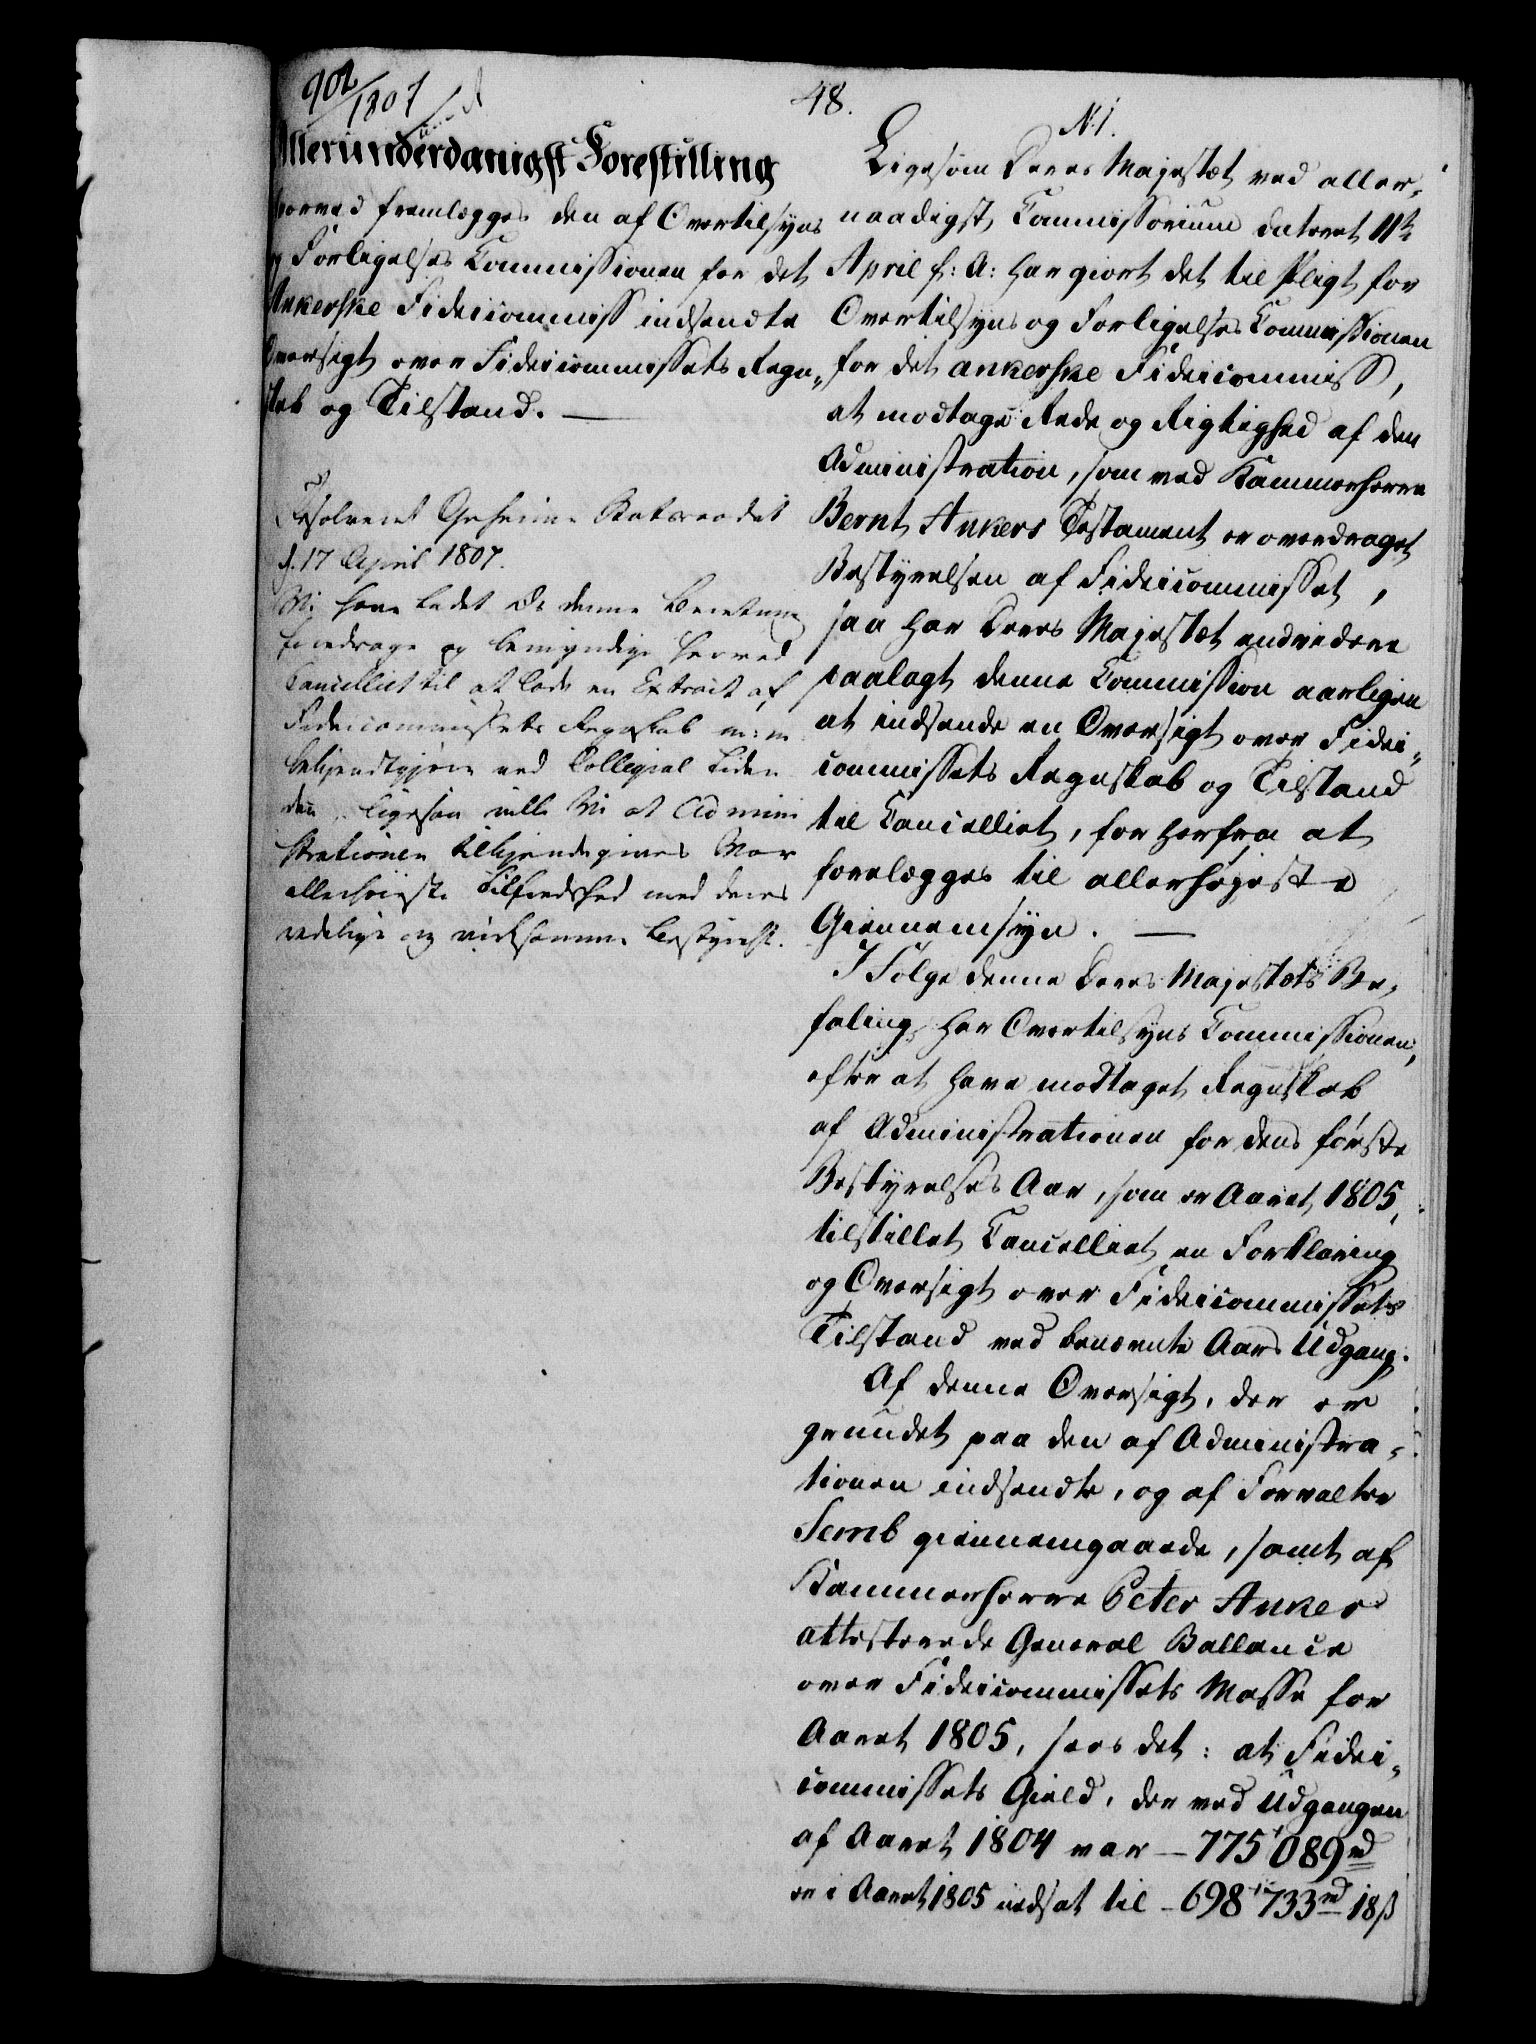 902/1807
48.
Allerunderdanigst Forestilling
hvorved fremlægges den af Overtilsyns
og Forligelses Commissionen for det
Ankerske Fideicommiss indsendte
Oversigt over Fideicommissets Regn-
skab og Tilstand. —
Resolveret Geheime Statsraadet
d. 17 April 1807.
Vi have ladet Os denne Beretning
foredrage og bemyndige herved
Cancelliet til at lade en Extract af
Fideicommissets Regnskab m: m
bekjendtgjøre ved Collegial Tiden
den, ligesom ville Vi at Admini
strationen tilkjendegives Vor
allerhøieste Tilfredshed med deres
redelige og virksomme Bestyrelse.
N. 1.
Ligesom Deres Majestæt ved aller-
naadigst Commissorium dateret 11te
April f: A: har giort det til Pligt for
Overtilsyns og Forligelses Commissionen
for det ankerske Fideicommiss,
at modtage Rede og Rigtighed af den
Administration, som ved Kammerherre
Bernt Ankers Testament er overdraget
Bestyrelsen af Fideicommisset,
saa har Deres Majestæt endvidere
paalagt denne Commission aarligen
at indsende en Oversigt over Fidei-
commissets Regnskab og Tilstand
til Cancelliet, for herfra at
forelægges til allerhøjeste
Giennemsyn. —
I Følge denne Deres Majestæts Be-
faling, har Overtilsyns Commissionen,
efter at have modtaget Regnskab
af Administrationen for dens første
Bestyrelses Aar, som er Aaret 1805,
tilstillet Cancelliet en Forklaring
og Oversigt over Fideicommissets
Tilstand ved benævnte Aars Udgang.
Af denne Oversigt, der er
grundet paa den af Administra-
tionen indsendte, og af Forvalter
Semb giennemgaaede, samt af
Kammerherre Peter Anker
attesterede General Ballance
over Fideicommissets Masse for
Aaret 1805, sees det: at Fidei-
commissets Gield, der ved Udgangen
af Aaret 1804 var — 775089 rd
er i Aaret 1805 nedsat til — 698733 rd 18 ß